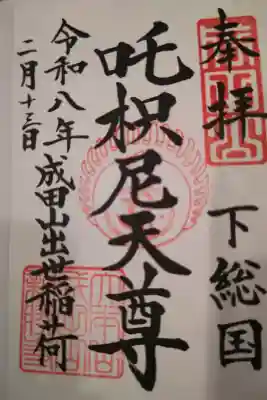 奉拝
下総国
吒枳尼天尊
令和八年
二月十三日
成田山出世稲荷